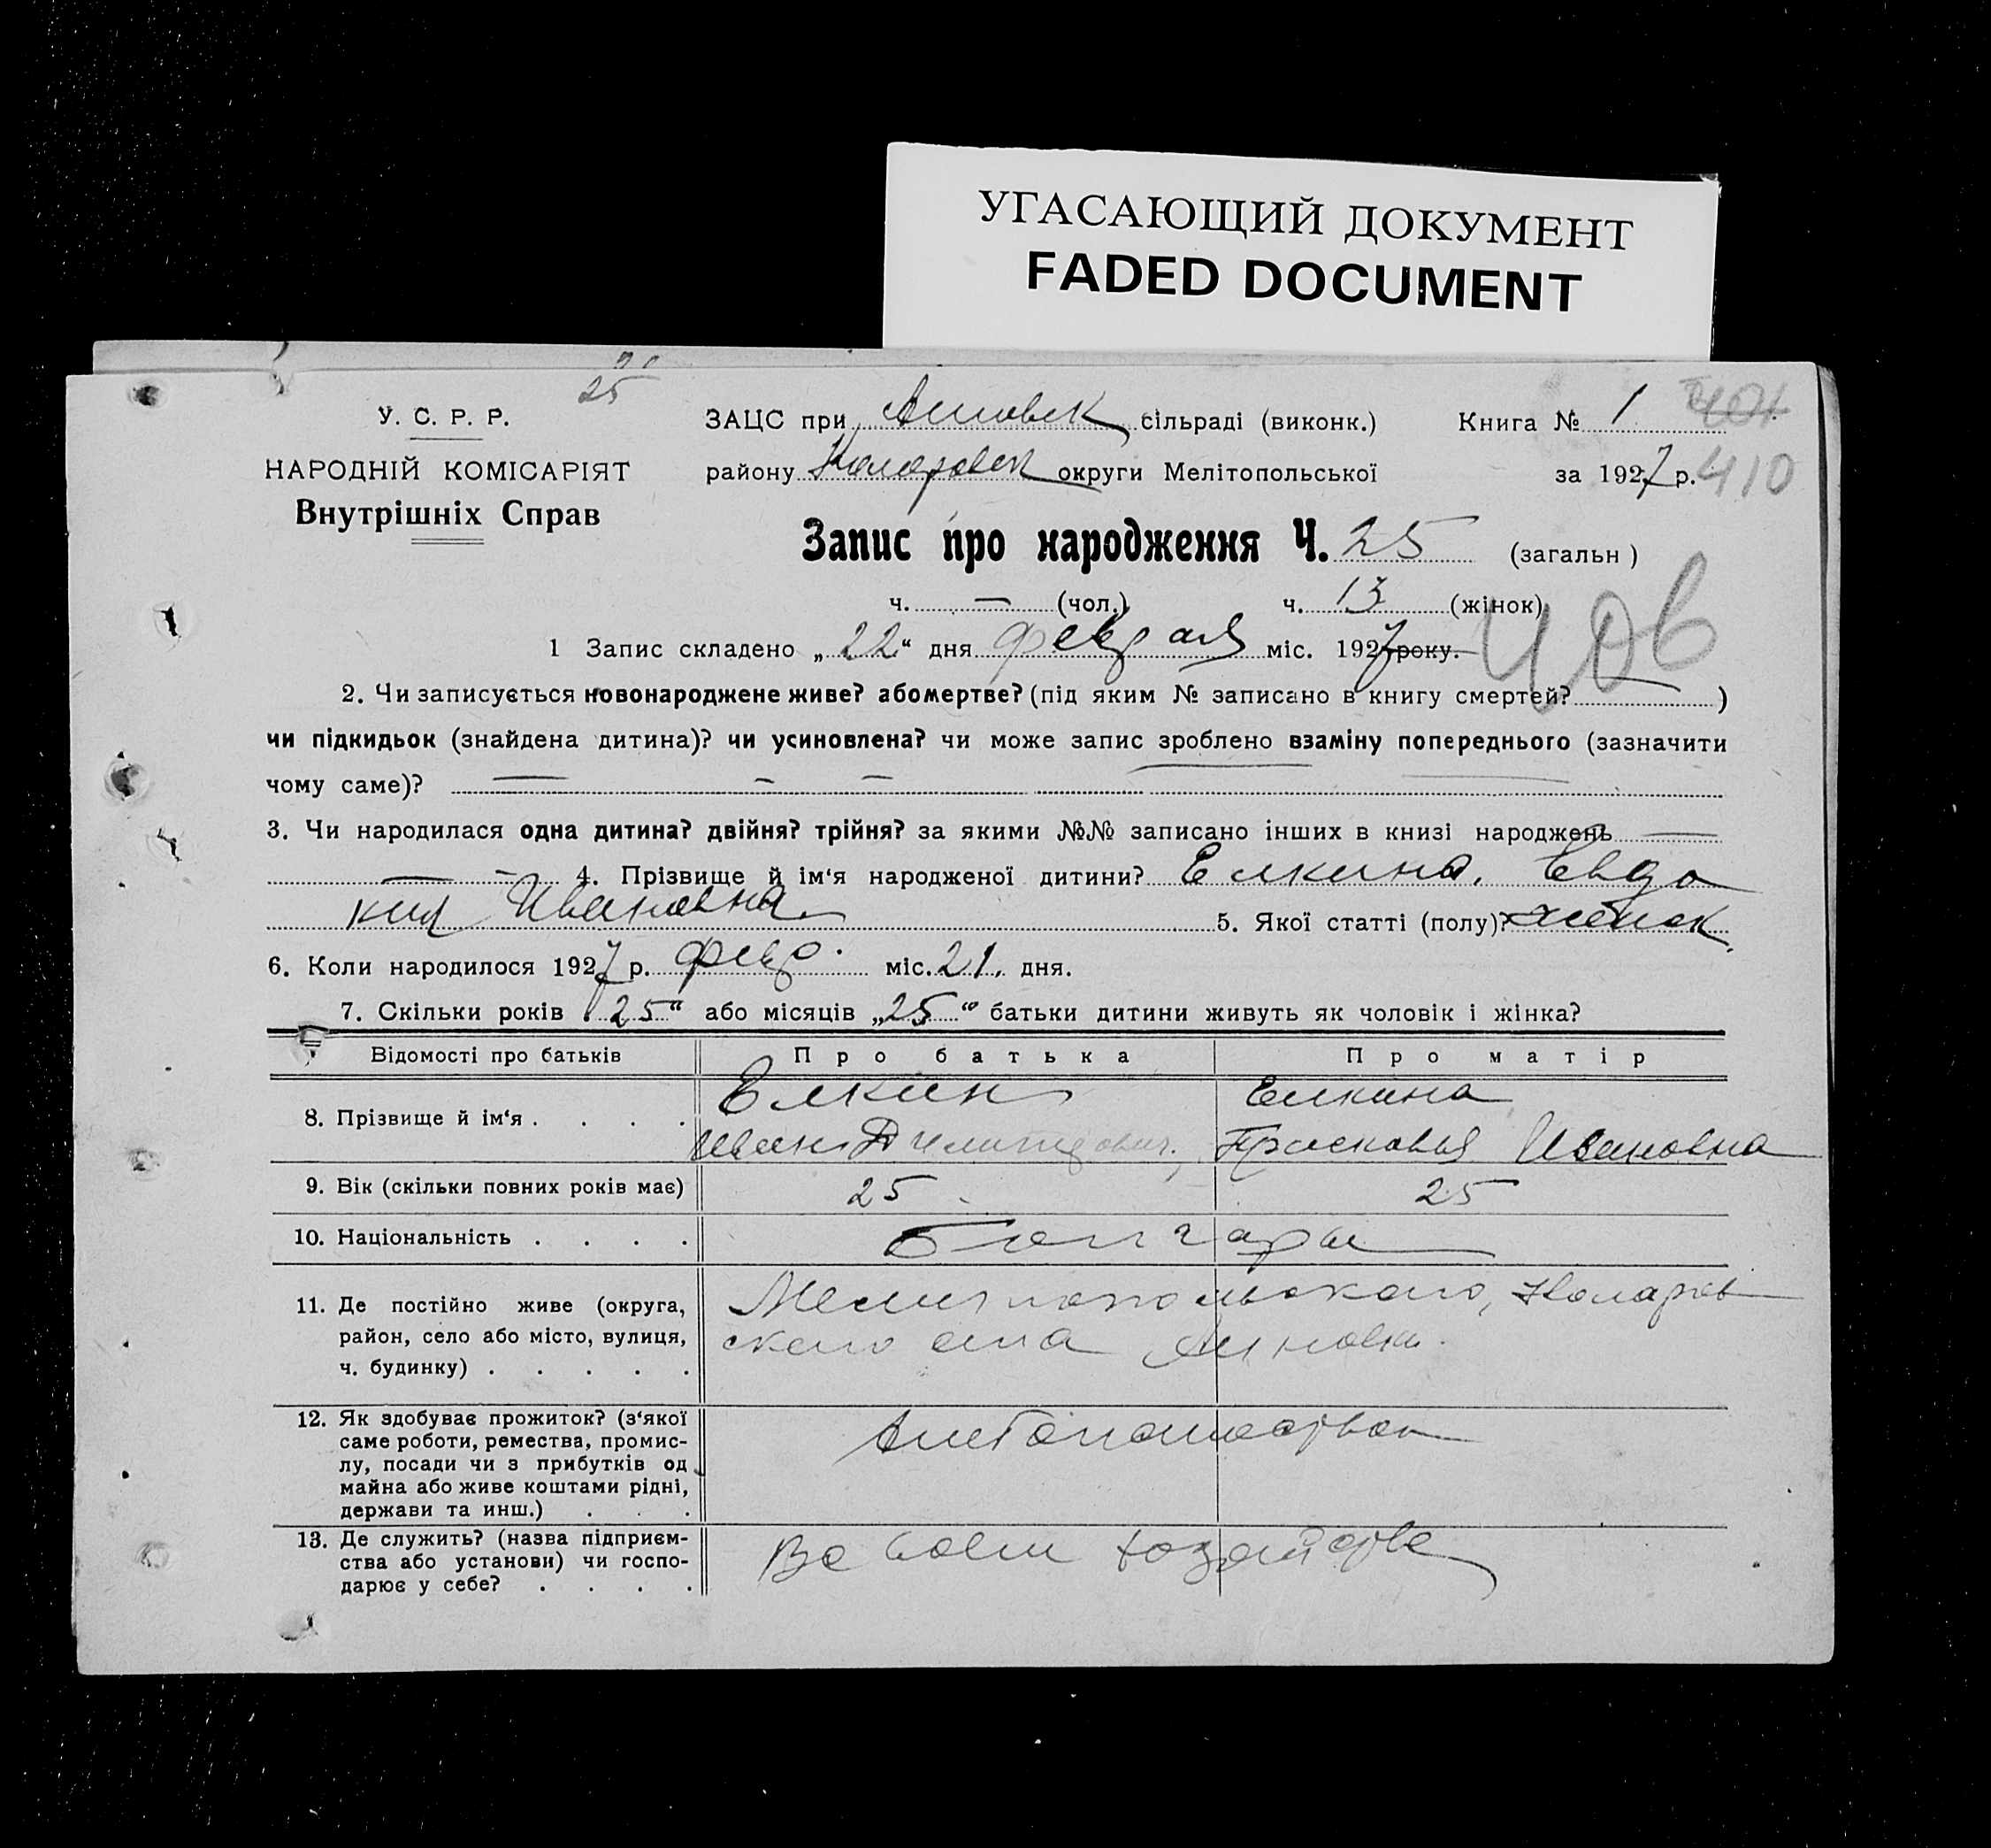 УГАСАЮЩИЙ ДОКУМЕНТ
FADED DOCUMENT
25
У. С. Р. Р.
НАРОДНІЙ КОМІСАРІЯТ
Внутрішніх Справ
ЗАЦС при сільраді (виконк.) Книга № 1
району Коларовск округи Мелітопольської за 1927 р. 410
Запис про народження Ч. 25 (загальн )
ч. — (чол.) ч. 13 (жінок)
1 Запис складено „22“ дня февраля міс. 1927 року.
2. Чи записується новонароджене живе? або мертве? (під яким № записано в книгу смертей? — )
чи підкидьок (знайдена дитина)? чи усиновлена? чи може запис зроблено взаміну попереднього (зазначити
чому саме)? — — —
3. Чи народилася одна дитина? двійня? трійня? за якими №№ записано інших в книзі народжень —
— — 4. Прізвище й ім‘я народженої дитини? Елкина. Евдо
кия Ивановна 5. Якої статті (полу)?
6. Коли народилося 1927 р. февр. міс. 21. дня.
7. Скільки років „25“ або місяців „25“ батьки дитини живуть як чоловік і жінка?
Відомості про батьків Про батька Про матір
8. Прізвище й ім‘я . . . . Елкин Елкина
Иван Прасковья Ивановна
9. Вік (скільки повних років має) 25 25
10. Національність . . . . Болгары
11. Де постійно живе (округа,
район, село або місто, вулиця,
ч. будинку) . . . . .
Мелитопольского, Коларов
ского села
12. Як здобуває прожиток? (з‘якої
саме роботи, ремества, промис-
лу, посади чи з прибутків од
майна або живе коштами рідні,
держави та инш.) . . .
13. Де служить? (назва підприєм-
ства або установи) чи госпо-
дарює у себе? . . . .
Во своем хозяйстве